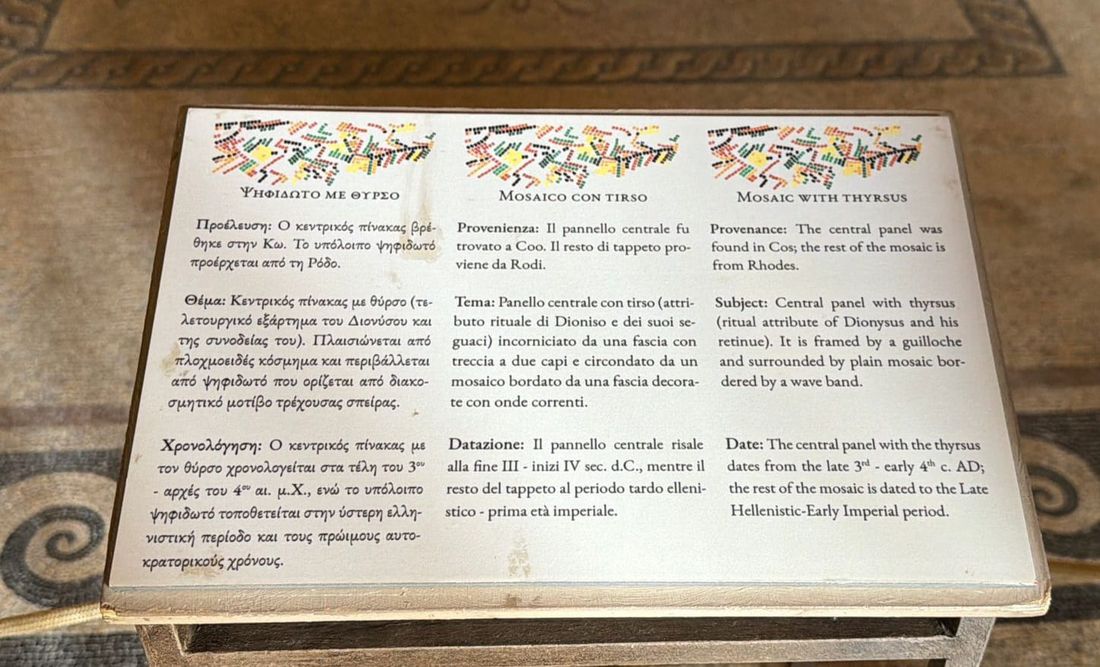 Ψηφιδωτο με θυρσο
Προέλευση: Ο κεντρικός πίνακας βρέ-
θηκε στην Κω. Το υπόλοιπο ψηφιδωτό
προέρχεται από τη Ρόδο.
Θέμα: Κεντρικός πίνακας με θύρσο (τε-
λετουργικό εξάρτημα του Διονύσου και
της συνοδείας του). Πλαισιώνεται από
πλοχμοειδές κόσμημα και περιβάλλεται
από ψηφιδωτό που ορίζεται από διακο-
σμητικό μοτίβο τρέχουσας σπείρας.
Χρονολόγηση: Ο κεντρικός πίνακας με
τον θύρσο χρονολογείται στα τέλη του 3ου
- αρχές του 4ου αι. μ.Χ., ενώ το υπόλοιπο
ψηφιδωτό τοποθετείται στην ύστερη ελλη-
νιστική περίοδο και τους πρώιμους αυτο-
κρατορικούς χρόνους.
Mosaico con tirso
Provenienza: Il pannello centrale fu
trovato a Coo. Il resto di tappeto pro-
viene da Rodi.
Tema: Panello centrale con tirso (attri-
buto rituale di Dioniso e dei suoi se-
guaci) incorniciato da una fascia con
treccia a due capi e circondato da un
mosaico bordato da una fascia decora-
te con onde correnti.
Datazione: Il pannello centrale risale
alla fine III - inizi IV sec. d.C., mentre il
resto del tappeto al periodo tardo elleni-
stico - prima età imperiale.
Mosaic with thyrsus
Provenance: The central panel was
found in Cos; the rest of the mosaic is
from Rhodes.
Subject: Central panel with thyrsus
(ritual attribute of Dionysus and his
retinue). It is framed by a guilloche
and surrounded by plain mosaic bor-
dered by a wave band.
Date: The central panel with the thyrsus
dates from the late 3rd - early 4th c. AD;
the rest of the mosaic is dated to the Late
Hellenistic-Early Imperial period.